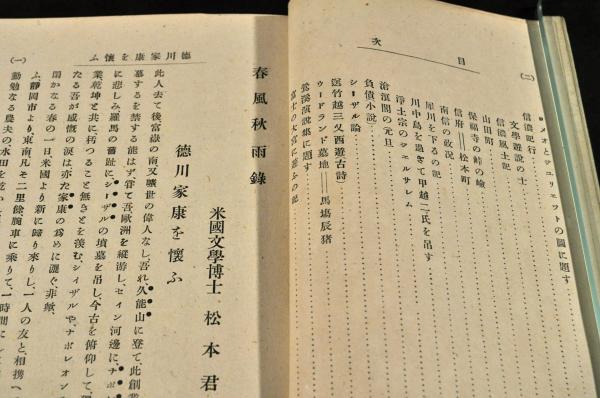 目次
(二)
ロメオとジュリエットの圖に題す
信濃紀行
文學遊說の士
信濃風土記
山田閣
保福寺の峠の嶮
信府――松本町
南信の政況
犀川を下るの記
川中島を過ぎて甲越二氏を吊す
淨土宗のジェルサレム
滄溟閣の元旦
負債小說
シーザル論
選竹越三叉西遊古詩
ウードランド墓地――馬塲辰猪
演說集に題す
富士の大宮に遊ぶの記
德川家康を懷ふ
(一)
春風秋雨錄
米國文學博士 松本君
德川家康を懷ふ
此人去て後富嶽の南又曠世の偉人なし、吾れ久能山に登て此創業
墓するを禁する能はず、嘗て吾歐洲を縱游し、セイン河邊に、ナポ
に悲しみ、羅馬の舊趾に、シーザルの墳墓を吊し、今古を俯仰して
業乾坤と共に朽つること無きとを羨む、シィザルや、ナポレオン
たる吾が感慨の淚は亦た家康の爲めに灑ぐ、非歟
閑かなる春の一日米國より新に歸り來りし、一人の友と、相携へ
ふ、靜岡市より東南凡そ二里餘腕車に乘りて、一時間に
勤勉なる農夫の水田を